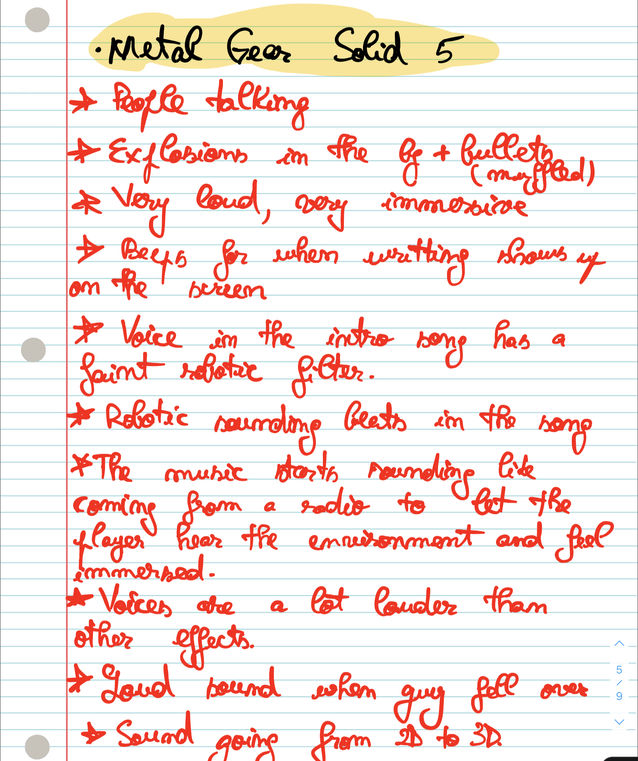 • Metal Gear Solid 5
→ People talking
→ Explosions in the bg + bullets
(muffled)
→ Very loud, very immersive
→ Beeps for when writting shows up
on the screen
→ Voice in the intro song has a
faint robotic filter.
→ Robotic sounding beats in the song
→ The music starts sounding like
coming from a radio to let the
player hear the environment and feel
immersed.
→ Voices are a lot louder than
other effects.
→ Loud sound when guy fell over
→ Sound going from 2D to 3D.
5
/
9